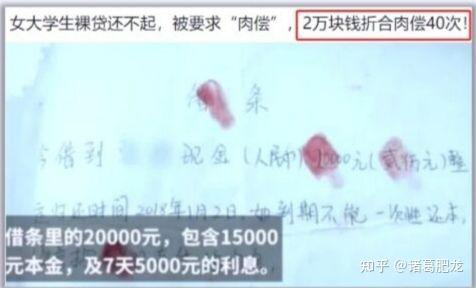 女大学生裸贷还不起，被要求“肉偿”，2万块钱折合肉偿40次！
借条
今借到 现金（人民币）15000元（贰
还时间2018年1月2日，如到期不能一次
借条里的20000元，包含15000
元本金，及7天5000元的利息。
知乎 @诸葛肥龙